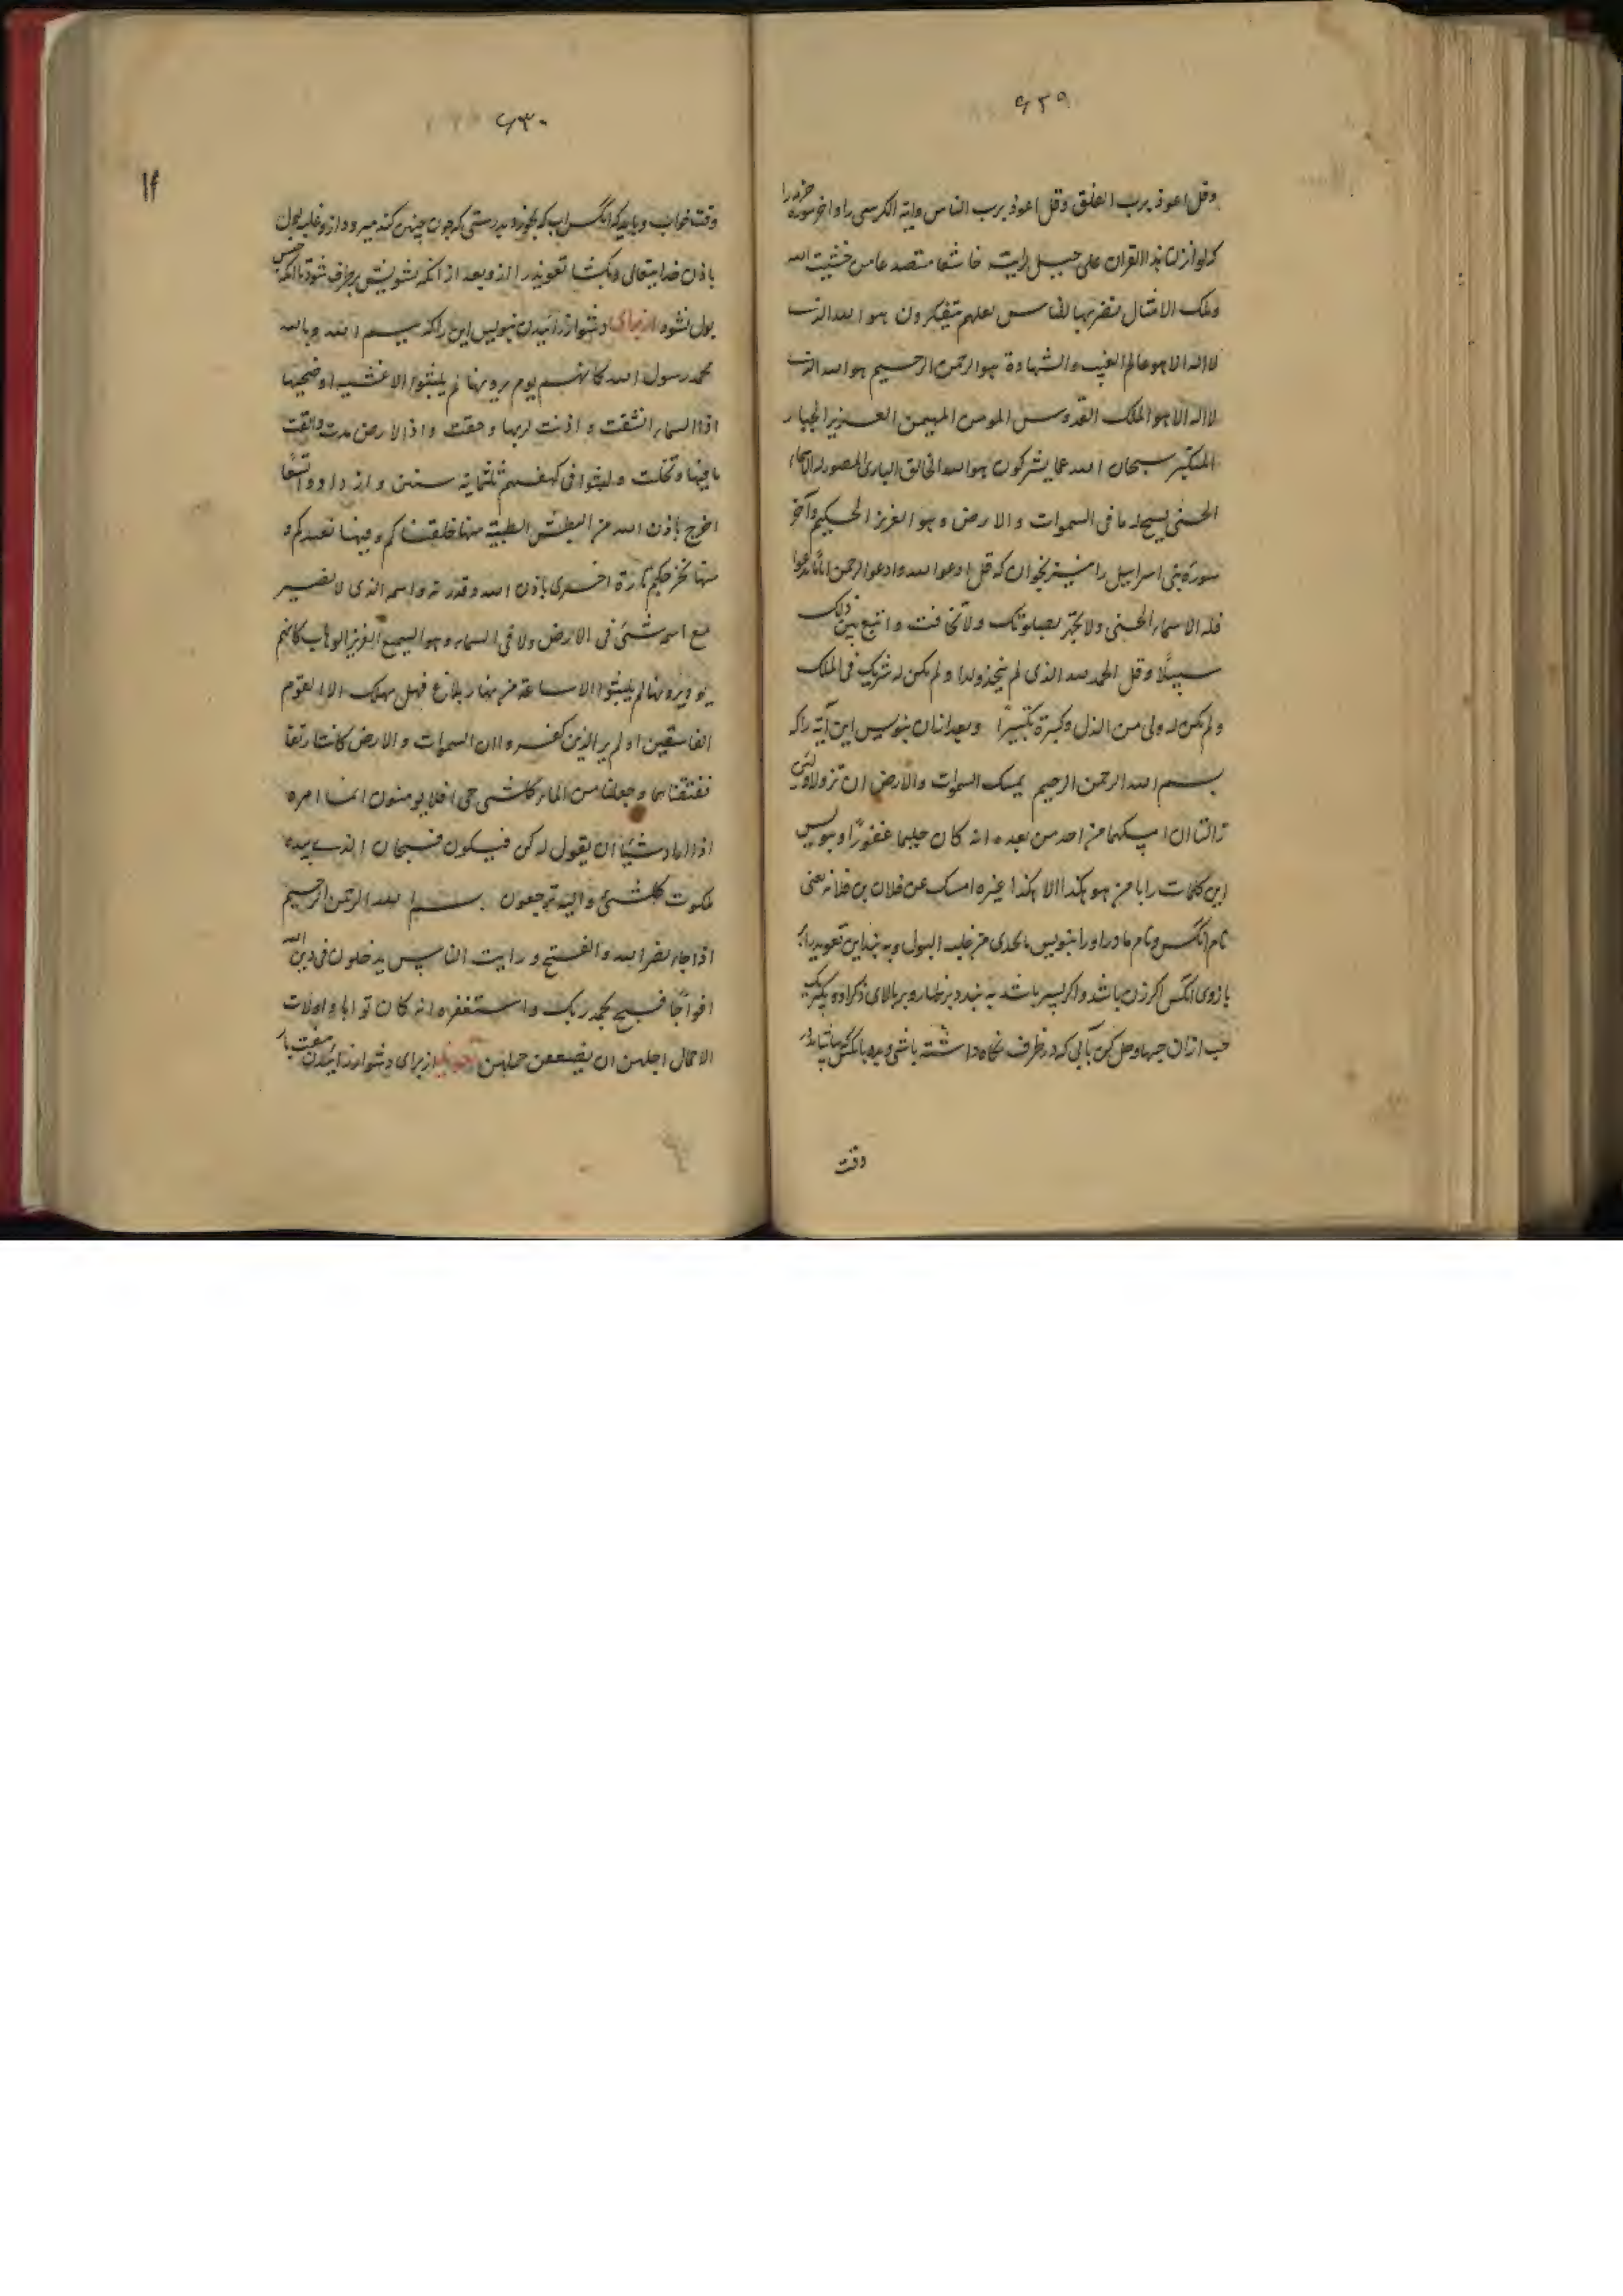 ۶۲۹
وقل اعوذ برب الفلق وقل اعوذ برب الناس وایة الکرسی را واخر سوره حشر را
که لو انزلنا هذا القران علی جبل لرایته خاشعا متصدعا من خشیت الله
وتلک الامثال نضربها للناس لعلهم یتفکرون هو الله الذی
لا اله الا هو عالم الغیب والشهادة هو الرحمن الرحیم هو الله الذی
لا اله الا هو الملک القدوس المومن المهیمن العزیز الجبار
المتکبر سبحان الله عما یشرکون هو الله الخالق الباری المصور له الاسماء
الحسنی یسبح له ما فی السموات والارض وهو العزیز الحکیم وآخر
سورهٔ بنی اسرائیل را نیز بخوان که قل ادعوا الله وادعوا الرحمن ایاما تدعوا
فله الاسماء الحسنی ولا تجهر بصلوتک ولا تخافت وابتغ بین ذلک
سبیلًا وقل الحمد لله الذی لم یتخذ ولدا ولم یکن له شریک فی الملک
ولم یکن له ولی من الذل وکبره تکبیرًا وبعد ازان بنویس این آیه را که
بسم الله الرحمن الرحیم یمسک السموات والارض ان تزولا ولئن
زالتا ان امسکهما من احد من بعده انه کان حلیما غفورًا وبنویس
این کلمات را یا من هو هکذا الا هکذا غیره امسک عن فلان بن فلانه یعنی
نام انکس ونام مادر او را بنویس غلب البول وبه بند این تعوید را بر
بازوی انکس اکر زن باشد واکر پسر باشد به بندد بر بالای ذکر او
حب ازان حبها وحل کن بآبی که در ظرف نگاه داشته باشی وبده بانکس
وقت
۶۳۰
۱۴
وقت خواب وباید که انکس اب که بخورد بدرستی که چون چنین کند میرود ازو غلبه بول
باذن خدایتعالی وبکشا تعویذ را ازو بعد از انکه تشویش برطرف شود تا انکه حبس
بول نشود از برای دشوار زائیدن بنویس این را که بسم الله وبالله
محمد رسول الله کانهم یوم یرونها لم یلبثوا الا عشیه اوضحیها
اذا السماء انشقت واذنت لربها وحقت واذا الارض مدت والقت
ما فیها وتخلت ولبثوا فی کهفهم ثلثمایة سنین وازدادوا تسعًا
اخرج باذن الله من البطن الطیبة منها خلقناکم وفیها نعیدکم و
منها نخرجکم تارة اخری باذن الله وقدرته واسمه الذی لا یضر
مع اسمه شئ فی الارض ولا فی السماء وهو السمیع العزیز الوهاب کانهم
یوم یرونها لم یلبثوا الا ساعة من نهار بلاغ فهل یهلک الا القوم
الفاسقین اولم یر الذین کفروا ان السموات والارض کانتا رتقا
ففتقناهما وجعلنا من الماء کلشی حی افلا یومنون انما امره
اذا اراد شیئا ان یقول له کن فیکون فسبحان الذی بیده
ملکوت کلشئ والیه ترجعون بسم الله الرحمن الرحیم
اذا جاء نصر الله والفتح ورایت الناس یدخلون فی دین الله
افواجًا فسبح بحمد ربک واستغفره انه کان توابا واولات
الاحمال اجلهن ان یضعهن حملهن از برای دشوار زائیدن